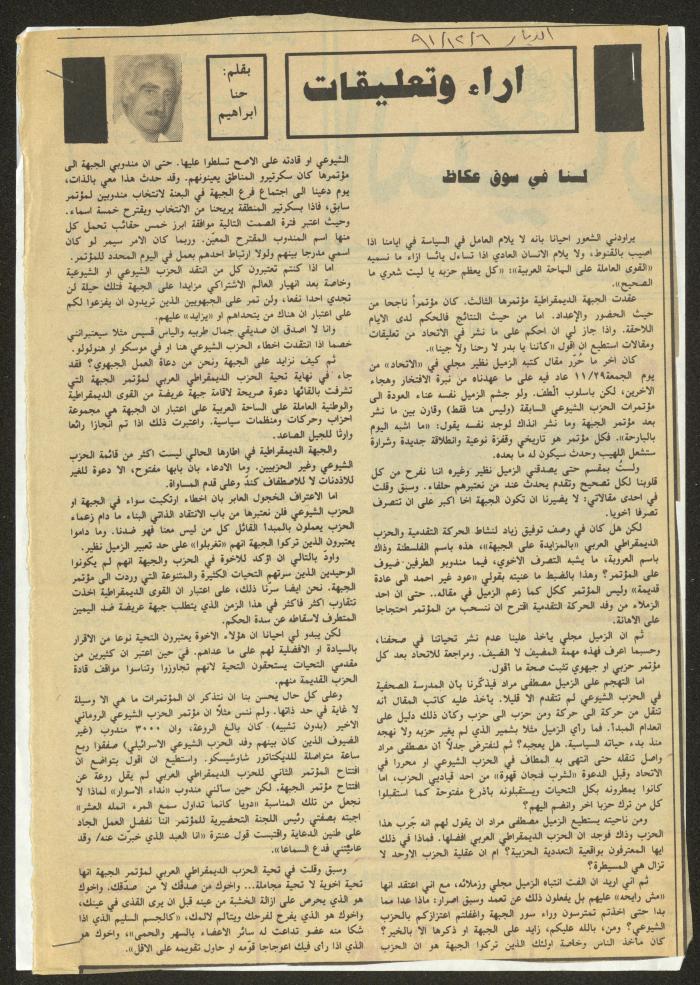 الديار ٩١/١٢/٦
اراء وتعليقات
بقلم:
حنا
ابراهيم
لسنا في سوق عكاظ
يراودني الشعور احيانا بانه لا يلام العامل في السياسة في ايامنا اذا
اصيب بالقنوط، ولا يلام الانسان العادي اذا تساءل يائسا ازاء ما نسميه
«القوى العاملة على الساحة العربية»: «كل يعظم حزبه يا ليت شعري ما
الصحيح».
عقدت الجبهة الديمقراطية مؤتمرها الثالث. كان مؤتمراً ناجحا من
حيث الحضور والإعداد. اما من حيث النتائج فالحكم لدى الايام
اللاحقة. واذا جاز لي ان احكم على ما نشر في الاتحاد من تعليقات
ومقالات استطيع ان اقول «كأننا يا بدر لا رحنا ولا جينا».
كان اخر ما حُرّر مقال كتبه الزميل نظير مجلي في «الاتحاد» من
يوم الجمعة ١١/٢٩ عاد فيه على ما عهدناه من نبرة الافتخار وهجاء
الاخرين، لكن باسلوب ألطف. ولو جشم الزميل نفسه عناء العودة الى
مؤتمرات الحزب الشيوعي السابقة (وليس هنا فقط) وقارن بين ما نشر
بعد مؤتمر الجبهة وما نشر انذاك لوجد نفسه يقول: «ما اشبه اليوم
بالبارحة». فكل مؤتمر هو تاريخي وقفزة نوعية وانطلاقة جديدة وشرارة
ستشعل اللهيب وحدث سيكون له ما بعده.
ولستُ بمقسم حتى يصدقني الزميل نظير وغيره اننا نفرح من كل
قلوبنا لكل تصحيح وتقدم يحدث عند من نعتبرهم حلفاء. وسبق وقلت
في احدى مقالاتي: لا يضيرنا ان تكون الجبهة اخا اكبر على ان تتصرف
تصرفا أخويا.
لكن هل كان في وصف توفيق زياد لنشاط الحركة التقدمية والحزب
الديمقراطي العربي «بالمزايدة على الجبهة»، هذه باسم الفلسطنة وذاك
باسم العروبة، ما يشبه التصرف الاخوي، فيما مندوبو الطرفين ضيوف
على المؤتمر؟ وهذا بالضبط ما عنيته بقولي «عود غير احمد الى عادة
قديمة» وليس المؤتمر ككل كما زعم الزميل في مقاله.. حتى ان احد
الزملاء من وفد الحركة التقدمية اقترح ان ننسحب من المؤتمر احتجاجا
على الاهانة.
ثم ان الزميل مجلي يأخذ علينا عدم نشر تحياتنا في صحفنا،
وحسبما اعرف فهذه مهمة المضيف لا الضيف. ومراجعة للاتحاد بعد كل
مؤتمر حزبي او جبهوي تثبت صحة ما أقول.
اما التهجم على الزميل مصطفى مراد فيذكّرنا بأن المدرسة الصحفية
في الحزب الشيوعي لم تتقدم الا قليلا. يأخذ عليه كاتب المقال أنه
تنقل من حركة الى حركة ومن حزب الى حزب وكأن ذلك دليل على
انعدام المبدأ. فما رأي الزميل مثلا بشمير الذي لم يغير حزبه ولا نهجه
منذ بدء حياته السياسية. هل يعجبه؟ ثم لنفترض جدلاً ان مصطفى مراد
واصل تنقله حتى انتهى به المطاف في الحزب الشيوعي او محررا في
الاتحاد وقبل الدعوة «لشرب فنجان قهوة» من احد قياديي الحزب، اما
كانوا يمطرونه بكل التحيات ويستقبلونه باذرع مفتوحة كما استقبلوا
كل من ترك حزبا اخر وانضم اليهم؟
ومن ناحيته يستطيع الزميل مصطفى مراد ان يقول لهم انه جَرب هذا
الحزب وذاك فوجد ان الحزب الديمقراطي العربي افضلها. فماذا في ذلك
ايها المعترفون بواقعية التعددية الحزبية؟ ام ان عقلية الحزب الاوحد لا
تزال هي المسيطرة؟
ثم اني اريد ان الفت انتباه الزميل مجلي وزملائه، مع اني اعتقد انها
«مش رايحه» عليهم بل يفعلون ذلك عن تعمد وسبق اصرار: ماذا عدا مما
بدا حتى اخذتم تتمترسون وراء سور الجبهة واغفلتم اعتزازكم بالحزب
الشيوعي؟ ومن، بالله عليكم، زايد على الجبهة او ذكرها الا بالخير؟
كان مأخذ الناس وخاصة اولئك الذين تركوا الجبهة هو ان الحزب
الشيوعي او قادته على الاصح تسلطوا عليها. حتى ان مندوبي الجبهة الى
مؤتمرها كان سكرتيرو المناطق يعينونهم. وقد حدث هذا معي بالذات،
يوم دعينا الى اجتماع فرع الجبهة في البعنة لانتخاب مندوبين لمؤتمر
سابق، فاذا بسكرتير المنطقة يريحنا من الانتخاب ويقترح خمسة اسماء.
وحيث اعتبر فترة الصمت التالية موافقة ابرز خمس حقائب تحمل كل
منها اسم المندوب المقترح المعيّن. وربما كان الامر سيمر لو كان
اسمي مدرجا بينهم ولولا ارتباط احدهم بعمل في اليوم المحدد للمؤتمر.
اما اذا كنتم تعتبرون كل من انتقد الحزب الشيوعي او الشيوعية
وخاصة بعد انهيار العالم الاشتراكي مزايدا على الجبهة فتلك حيلة لن
تجدي احدا نفعا، ولن تمر على الجبهويين الذين تريدون ان يفزعوا لكم
على اعتبار ان هناك من يتحداهم او «يزايد» عليهم.
وانا لا اصدق ان صديقي جمال طربيه والياس قسيس مثلا سيعتبرانني
خصما اذا انتقدت اخطاء الحزب الشيوعي هنا او في موسكو او هنولولو.
ثم كيف نزايد على الجبهة ونحن من دعاة العمل الجبهوي؟ فقد
جاء في نهاية تحية الحزب الديمقراطي العربي لمؤتمر الجبهة التي
تشرفت بالقائها دعوة صريحة لاقامة جبهة عريضة من القوى الديمقراطية
والوطنية العاملة على الساحة العربية على اعتبار ان الجبهة هي مجموعة
احزاب وحركات ومنظمات سياسية. واعتبرت ذلك اذا تم انجازا رائعا
وارثا للجيل الصاعد.
والجبهة الديمقراطية في اطارها الحالي ليست اكثر من قائمة الحزب
الشيوعي وغير الحزبيين. وما الادعاء بان بابها مفتوح، الا دعوة للغير
للاذدناب لا للاصطفاف كندّ وعلى قدم المساواة.
اما الاعتراف الخجول العابر بان اخطاء ارتكبت سواء في الجبهة او
الحزب الشيوعي فلن نعتبرها من باب الانتقاد الذاتي البناء ما دام زعماء
الحزب يعملون بالمبدأ القائل كل من ليس معنا فهو ضدنا. وما داموا
يعتبرون الذين تركوا الجبهة انهم «تغربلوا» على حد تعبير الزميل نظير.
واودّ بالتالي ان اؤكد للاخوة في الحزب والجبهة انهم لم يكونوا
الوحيدين الذين سرتهم التحيات الكثيرة والمتنوعة التي وردت الى مؤتمر
الجبهة. نحن ايضا سرنا ذلك، على اعتبار ان القوى الديمقراطية اخذت
تتقارب اكثر فاكثر في هذا الزمن الذي يتطلب جبهة عريضة ضد اليمين
المتطرف لاسقاطه عن سدة الحكم.
لكن يبدو لي احيانا ان هؤلاء الاخوة يعتبرون التحية نوعا من الاقرار
بالسيادة او الافضلية لهم على ما عداهم. في حين اعتبر ان كثيرين من
مقدمي التحيات يستحقون التحية لانهم تجاوزوا وتناسوا مواقف قادة
الحزب القديمة منهم.
وعلى كل حال يحسن بنا ان نتذكر ان المؤتمرات ما هي الا وسيلة
لا غاية في حد ذاتها. ولم ننس مثلاً ان مؤتمر الحزب الشيوعي الروماني
الاخير (بدون تشبيه) كان بالغ الروعة، وان ٣٠٠٠ مندوب (غير
الضيوف الذين كان بينهم وفد الحزب الشيوعي الاسرائيلي) صفقوا ربع
ساعة متواصلة للديكتاتور شاوشيسكو. واستطيع ان اقول بتواضع ان
افتتاح المؤتمر الثاني للحزب الديمقراطي العربي لم يقل روعة عن
افتتاح مؤتمر الجبهة. لكن حين سألني مندوب «نداء الاسوار» لماذا لا
نجعل من تلك المناسبة «دويا كانما تداول سمع المرء انمله العشر»
اجبته بصفتي رئيس اللجنة التحضيرية للمؤتمر اننا نفضل العمل الجاد
على طنين الدعاية واقتبست قول عنترة «انا العبد الذي خبرت عنه/ وقد
عاينتني فدع السماعا».
وسبق وقلت في تحية الحزب الديمقراطي العربي لمؤتمر الجبهة انها
تحية اخوية لا تحية مجاملة... واخوك من صدَقك لا من صدّقك. واخوك
هو الذي يحرص على ازالة الخشبة من عينه قبل ان يرى القذى في عينك،
واخوك هو الذي يفرح لفرحك ويتالم لالمك، «كالجسم السليم الذي اذا
شكا منه عضو تداعت له سائر الاعضاء بالسهر والحمى»، واخوك هو
الذي اذا رأى فيك اعوجاجا قوّمه او حاول تقويمه على الاقل».